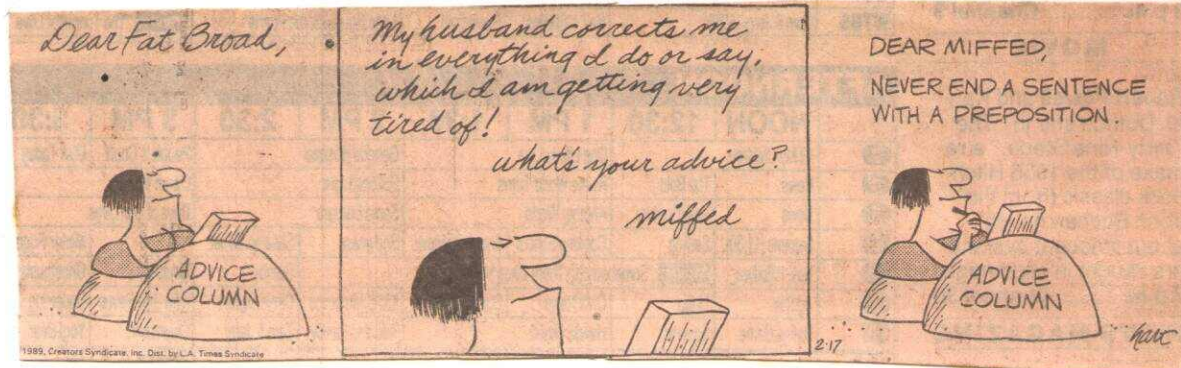 Dear Fat Broad,
ADVICE
COLUMN
1989, Creators Syndicate, Inc. Dist. by L.A. Times Syndicate
My husband corrects me
in everything I do or say,
which I am getting very
tired of!
what's your advice?
miffed
2·17
DEAR MIFFED,
NEVER END A SENTENCE
WITH A PREPOSITION.
ADVICE
COLUMN
hart